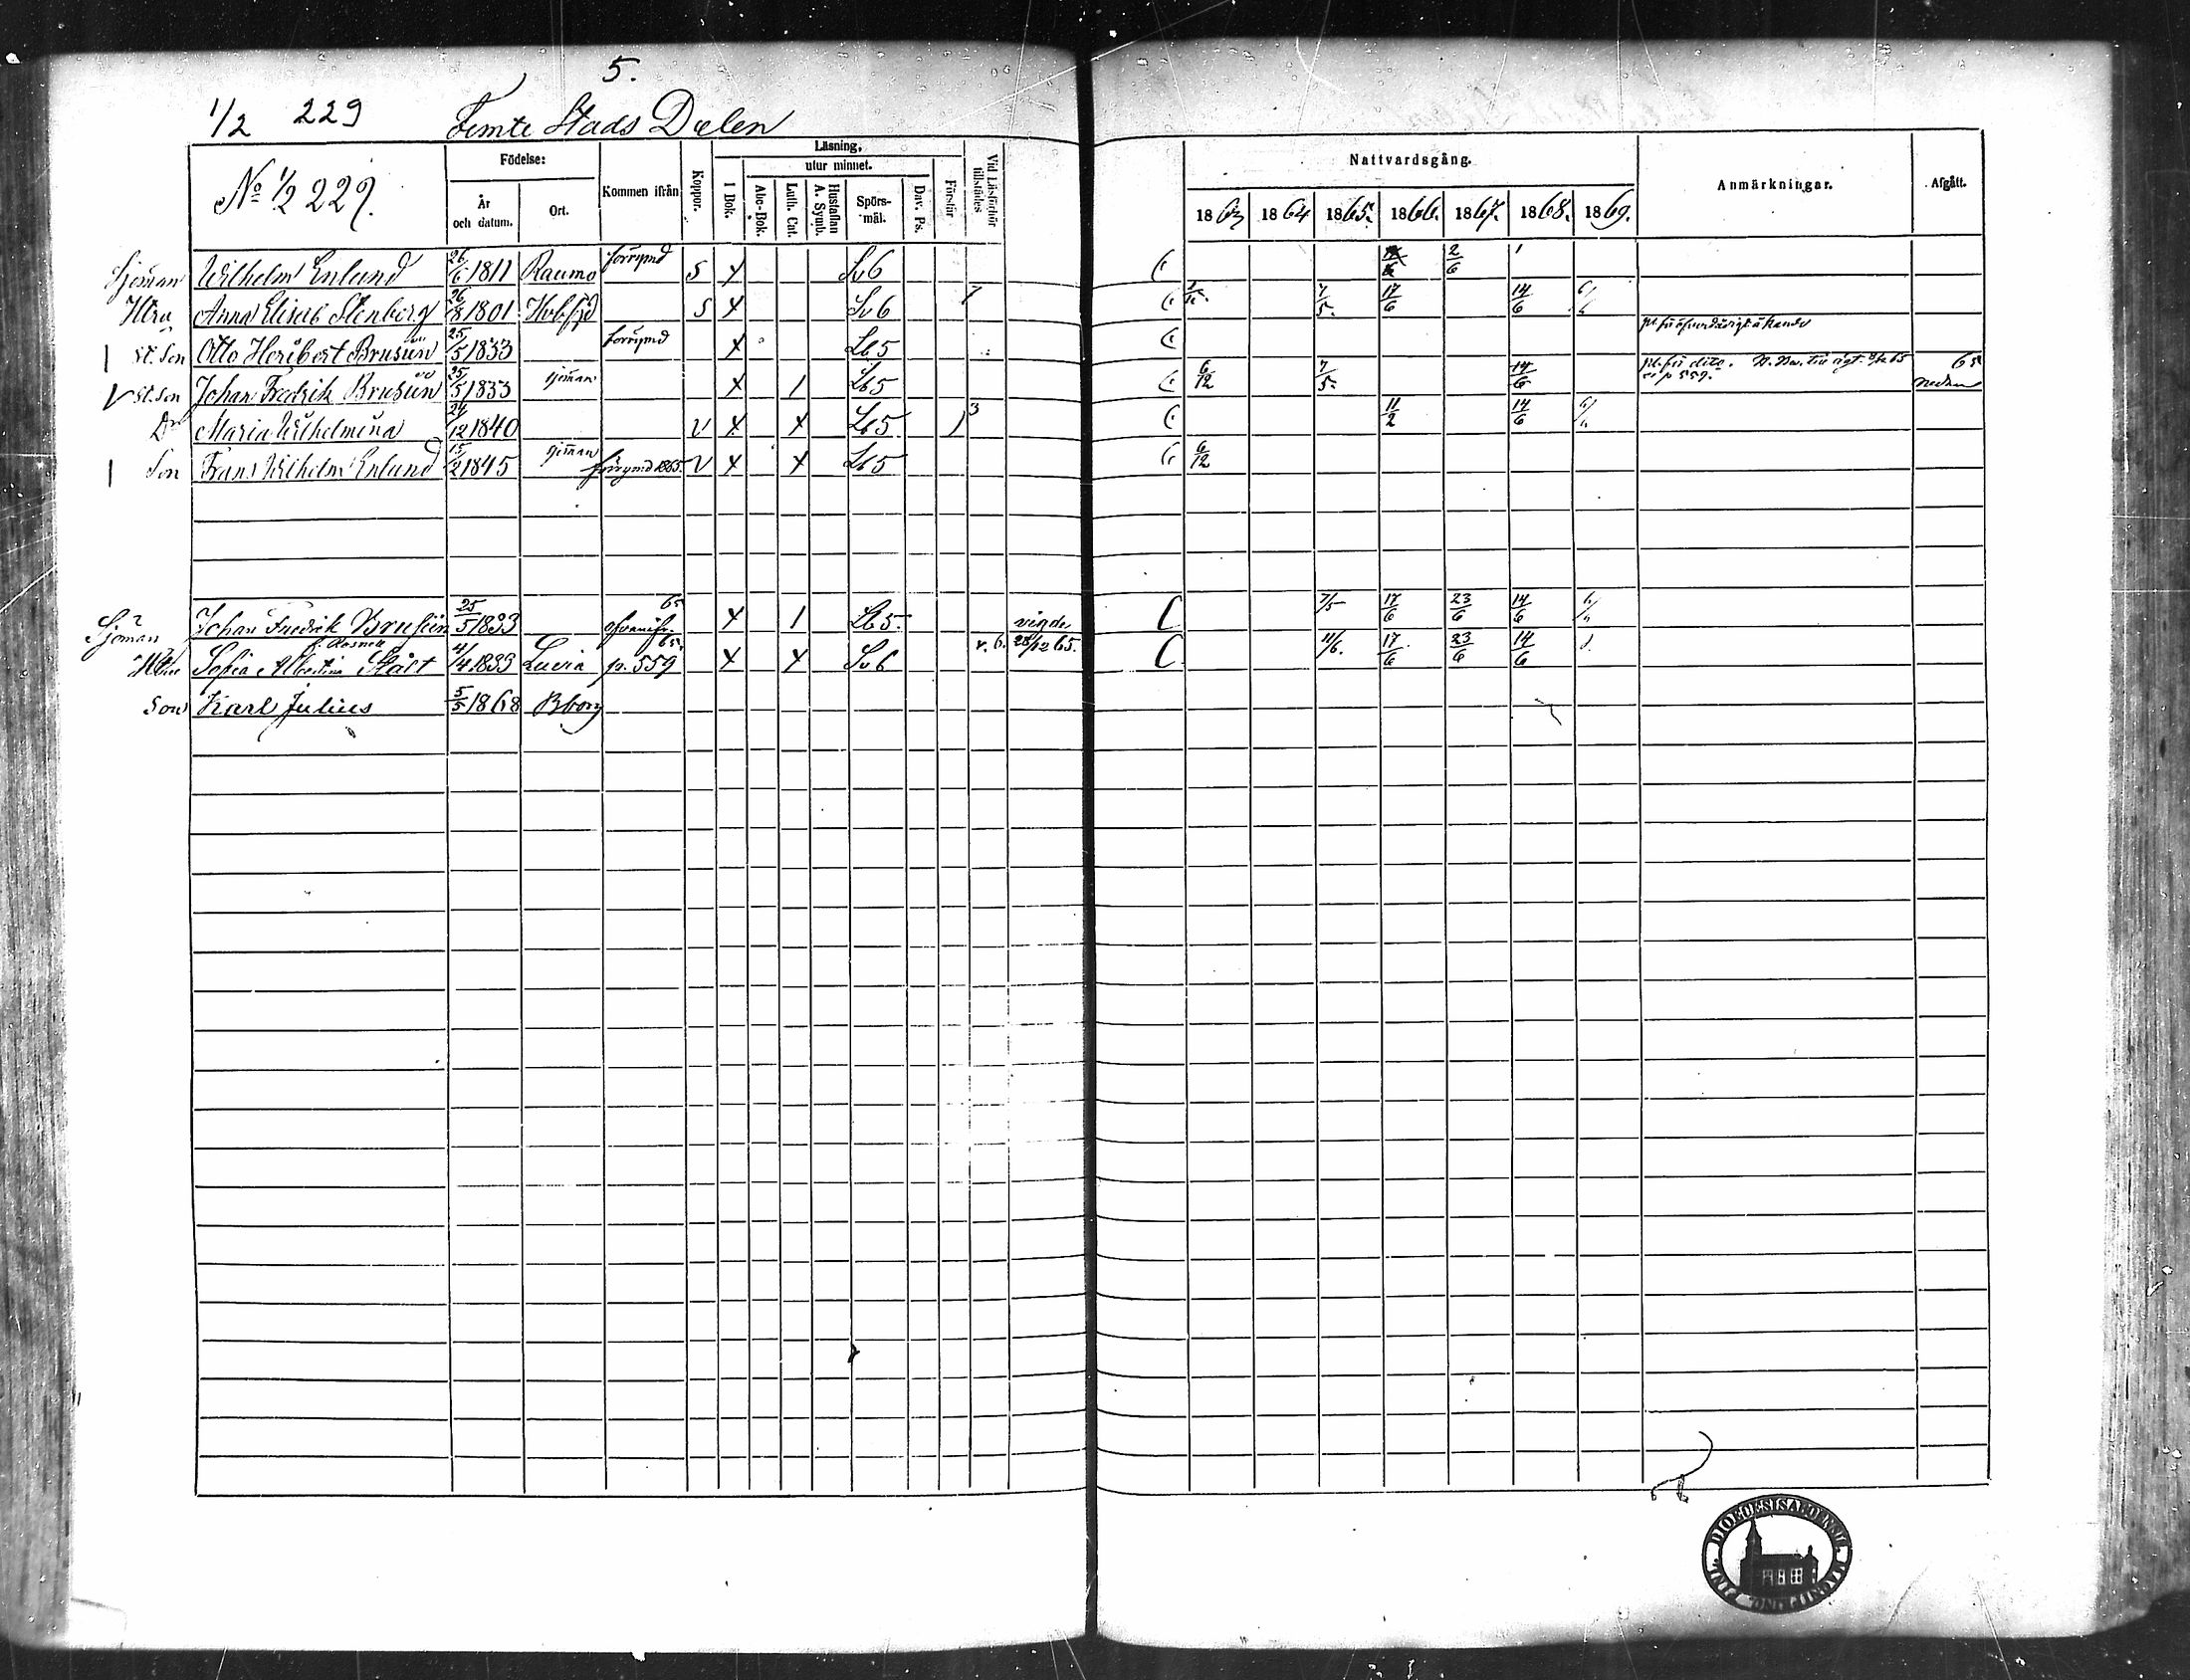 5.
1/2 229 Femte Stads Delen
No 1/2 229.
Födelse:
År och datum.
Ort.
Kommen ifrån
Koppor.
Läsning,
utur minnet.
I Bok.
Abc-Bok.
Luth. Cat.
Hustaflan A. Symb.
Spörsmål.
Dav. Ps.
Förstår
Vid Läsförhör tillstädes
Nattvardsgång.
1863 1864 1865. 1866. 1867. 1868. 1869.
Anmärkningar.
Afgått.
Sjöman Wilhelm Enlund 26/6 1811 Raumo förrymd S x Sv 6 2/6
Htru Anna Elisab Stenberg 26/8 1801 S x Sv 6 7 7/5. 17/6 14/6
st. Son Otto Heribert Brusiin 25/5 1833 förrymd x Lb 5
V st. Son Johan Fredrik Brusiin 25/5 1833 sjöman x 1 Lb 5 6/12 7/5. 14/6 p 559. 65 nedan
Dr Maria Wilhelmina 24/12 1840 V x x Lb 5 3 11/2 14/6
Son Frans Wilhelm Enlund 15/2 1845 sjöman förrymd 1865 V x x Lb 5 6/12
Sjöman Johan Fredrik Brusiin 25/5 1833 65 x 1 Lb 5. vigde 7/5 17/6 23/6 14/6
Sofia Albertina 4/4 1833 Luvia 65. p. 559 x x Sv 6 v. 6. 28/12 65. 11/6. 17/6 23/6 14/6
Son Karl Julius 5/5 1868 Bborg
DIOECESIS ABOENSIS. MAGNI PRINC. FINL.